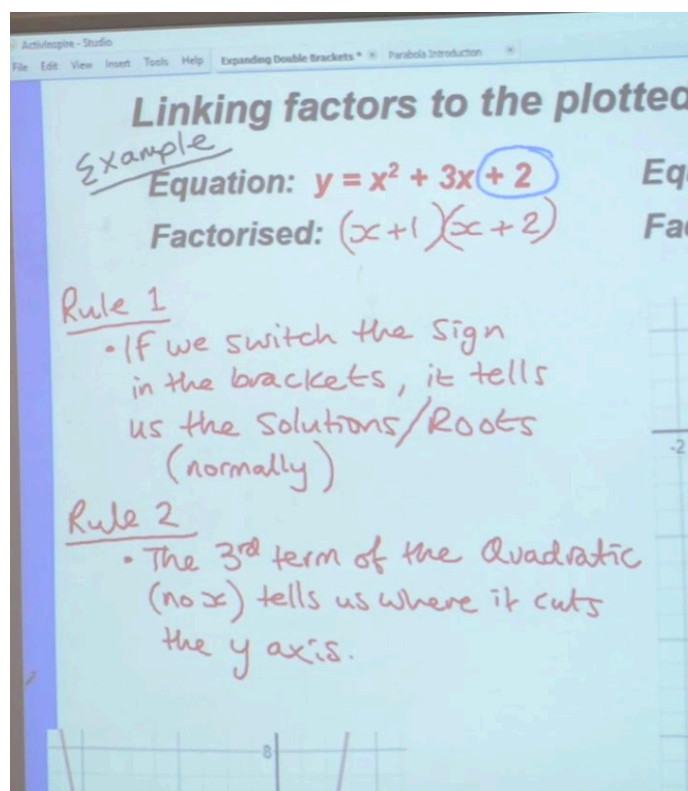 ActivInspire - Studio
File Edit View Insert Tools Help Expanding Double Brackets * Parabola Introduction
Linking factors to the plotted
Example
Equation: y = x² + 3x + 2
Eq
Factorised: (x+1)(x+2)
Fa
Rule 1
• If we switch the sign
in the brackets, it tells
us the Solutions/Roots
(normally)
-2
Rule 2
• The 3rd term of the Quadratic
(no x) tells us where it cuts
the y axis.
8